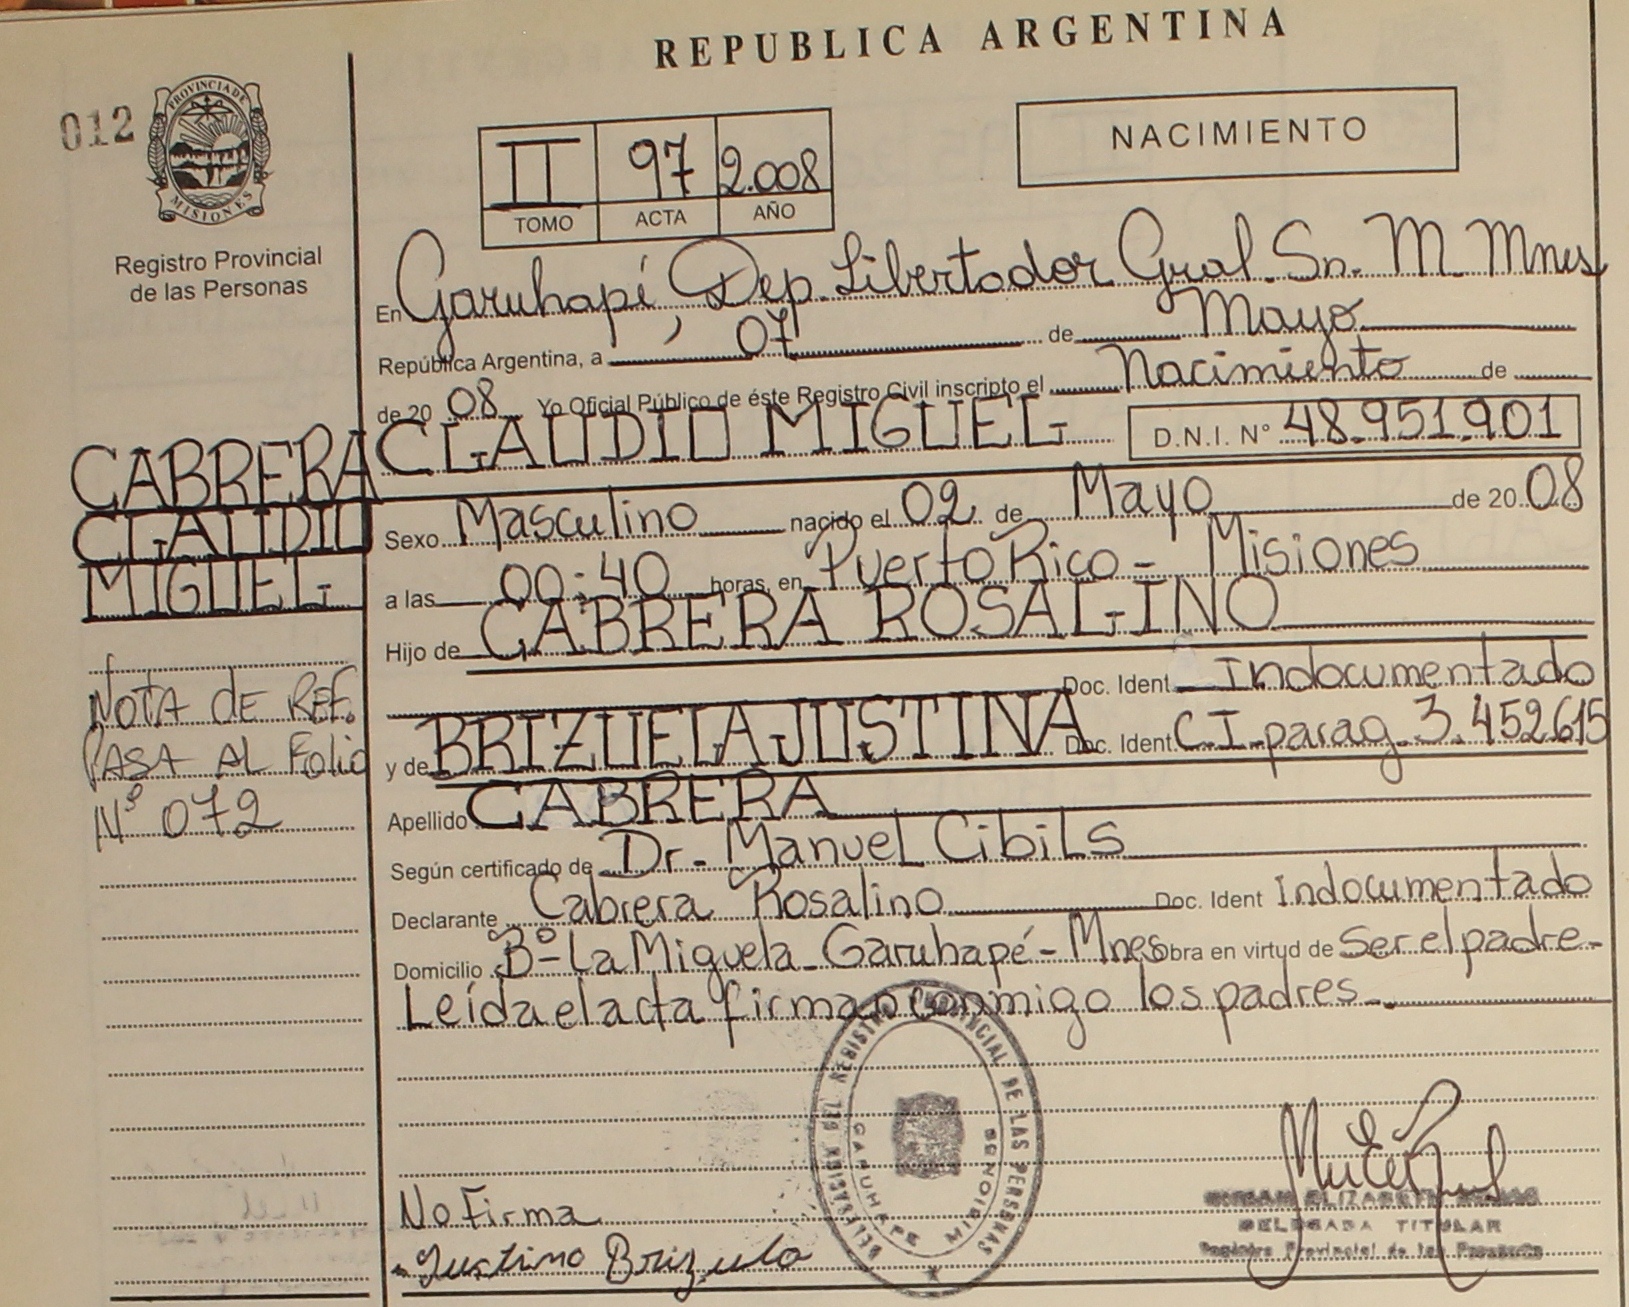 REPUBLICA ARGENTINA
012
PROVINCIA DE
MISIONES
Registro Provincial
de las Personas
II 97 2.008
TOMO ACTA AÑO
NACIMIENTO
En Garuhapí, Dep. Libertador Gral. Sn. M. Mnes
República Argentina, a 07 de Mayo
de 20 08 Yo Oficial Público de éste Registro Civil inscripto el Nacimiento de
CLAUDIO MIGUEL D.N.I. N° 48.951.901
CABRERA
CLAUDIO
MIGUEL
Sexo Masculino nacido el 02 de Mayo de 20 08
a las 00:40 horas, en Puerto Rico - Misiones
Hijo de CABRERA ROSALINO
Doc. Ident Indocumentado
y de BRIZUELA JUSTINA Doc. Ident C.I. parag. 3.452615
Apellido CABRERA
Según certificado de Dr. Manuel Cibils
Declarante Cabrera Rosalino Doc. Ident Indocumentado
Domicilio B° La Miguela - Garuhapé - Mnes Obra en virtud de Ser el padre -
Leída el acta firman conmigo los padres
NOTA DE REF.
PASA AL Folio
N° 072
No Firma
Justino Brizuela
DELEGACION DEL REGISTRO PROVINCIAL DE LAS PERSONAS
GARUHAPE
ELIZABETH
DELEGADA TITULAR
Registro Provincial de las Personas